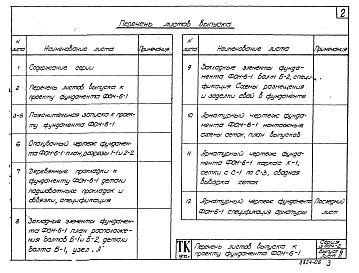 2
Перечень листов выпуска
N листа
Наименование листа
Примечания
1
Содержание серии
2
Перечень листов выпуска к
проекту фундамента ФОН-6-1
3-5
Пояснительная записка к прое-
кту фундамента ФОН-6-1
6
Опалубочный чертеж фундамен-
та ФОН-6-1 план, разрезы 1-1 и 2-2
7
Деревянные прокладки к
фундаменту ФОН-6-1 детали
подшаботных прокладок и
обвязки, спецификация
8
Закладные элементы фундамен-
та ФОН-6-1 план расположе-
ния болтов Б-1 и Б-2, детали
болта Б-1, узел „А"
N листа
Наименование листа
Примечания
9
Закладные элементы фунда-
мента ФОН-6-1 болт Б-2, специ-
фикация Схемы размещения
и заделки свай в фундаменте
10
Арматурный чертеж фунда-
мента ФОН-6-1 монтажные
схемы сеток, план выпусков
11
Арматурный чертеж фунда-
мента ФОН-6-1 каркас К-1,
сетки с С-1 по С-3, сводная
выборка сеток
12
Арматурный чертеж фундамента
ФОН-6-1 спецификация арматуры
Последний
лист
ТК
Перечень листов выпуска к
проекту фундамента ФОН-6-1
Серия
3